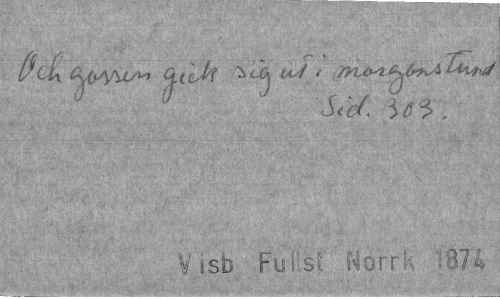 Och gossen gick sig ut i morgonstund
Sid. 303.
Visb Fullst Norrk 1874